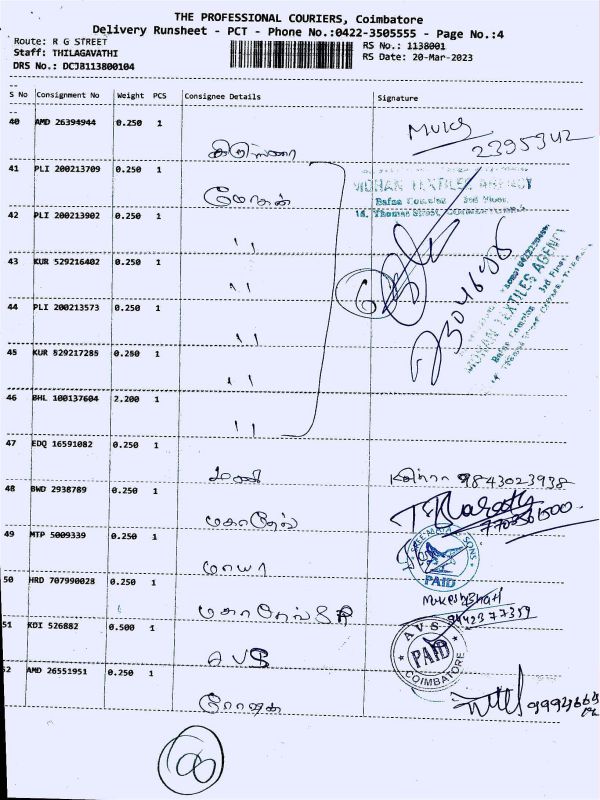 THE PROFESSIONAL COURIERS, Coimbatore
Delivery Runsheet - PCT - Phone No.:0422-3505555 - Page No.:4
Route: R G STREET
RS No.: 1138001
Staff: THILAGAVATHI
RS Date: 20-Mar-2023
DRS No.: DCJB113800104
S No Consignment No Weight PCS Consignee Details Signature
40 AMD 26394944 0.250 1
2395942
41 PLI 200213709 0.250 1 மோகன்
MOHAN TEXTILES AGENCY
Bafna Complex 3rd Floor,
42 PLI 200213902 0.250 1 ''
43 KUR 529216402 0.250 1 ''
6
44 PLI 200213573 0.250 1 ''
45 KUR 529217285 0.250 1 ''
46 BHL 100137604 2.200 1 ''
47 EDQ 16591082 0.250 1 மணி
9843023938
48 BWD 2938789 0.250 1 மகாதேவ்
49 MTP 5009339 0.250 1 மாயா
PAID
50 HRD 707990028 0.250 1
Mukesh Bhati
9442377359
51 KDI 526882 0.500 1 AVS
AVS
PAID
COIMBATORE
52 AMD 26551951 0.250 1